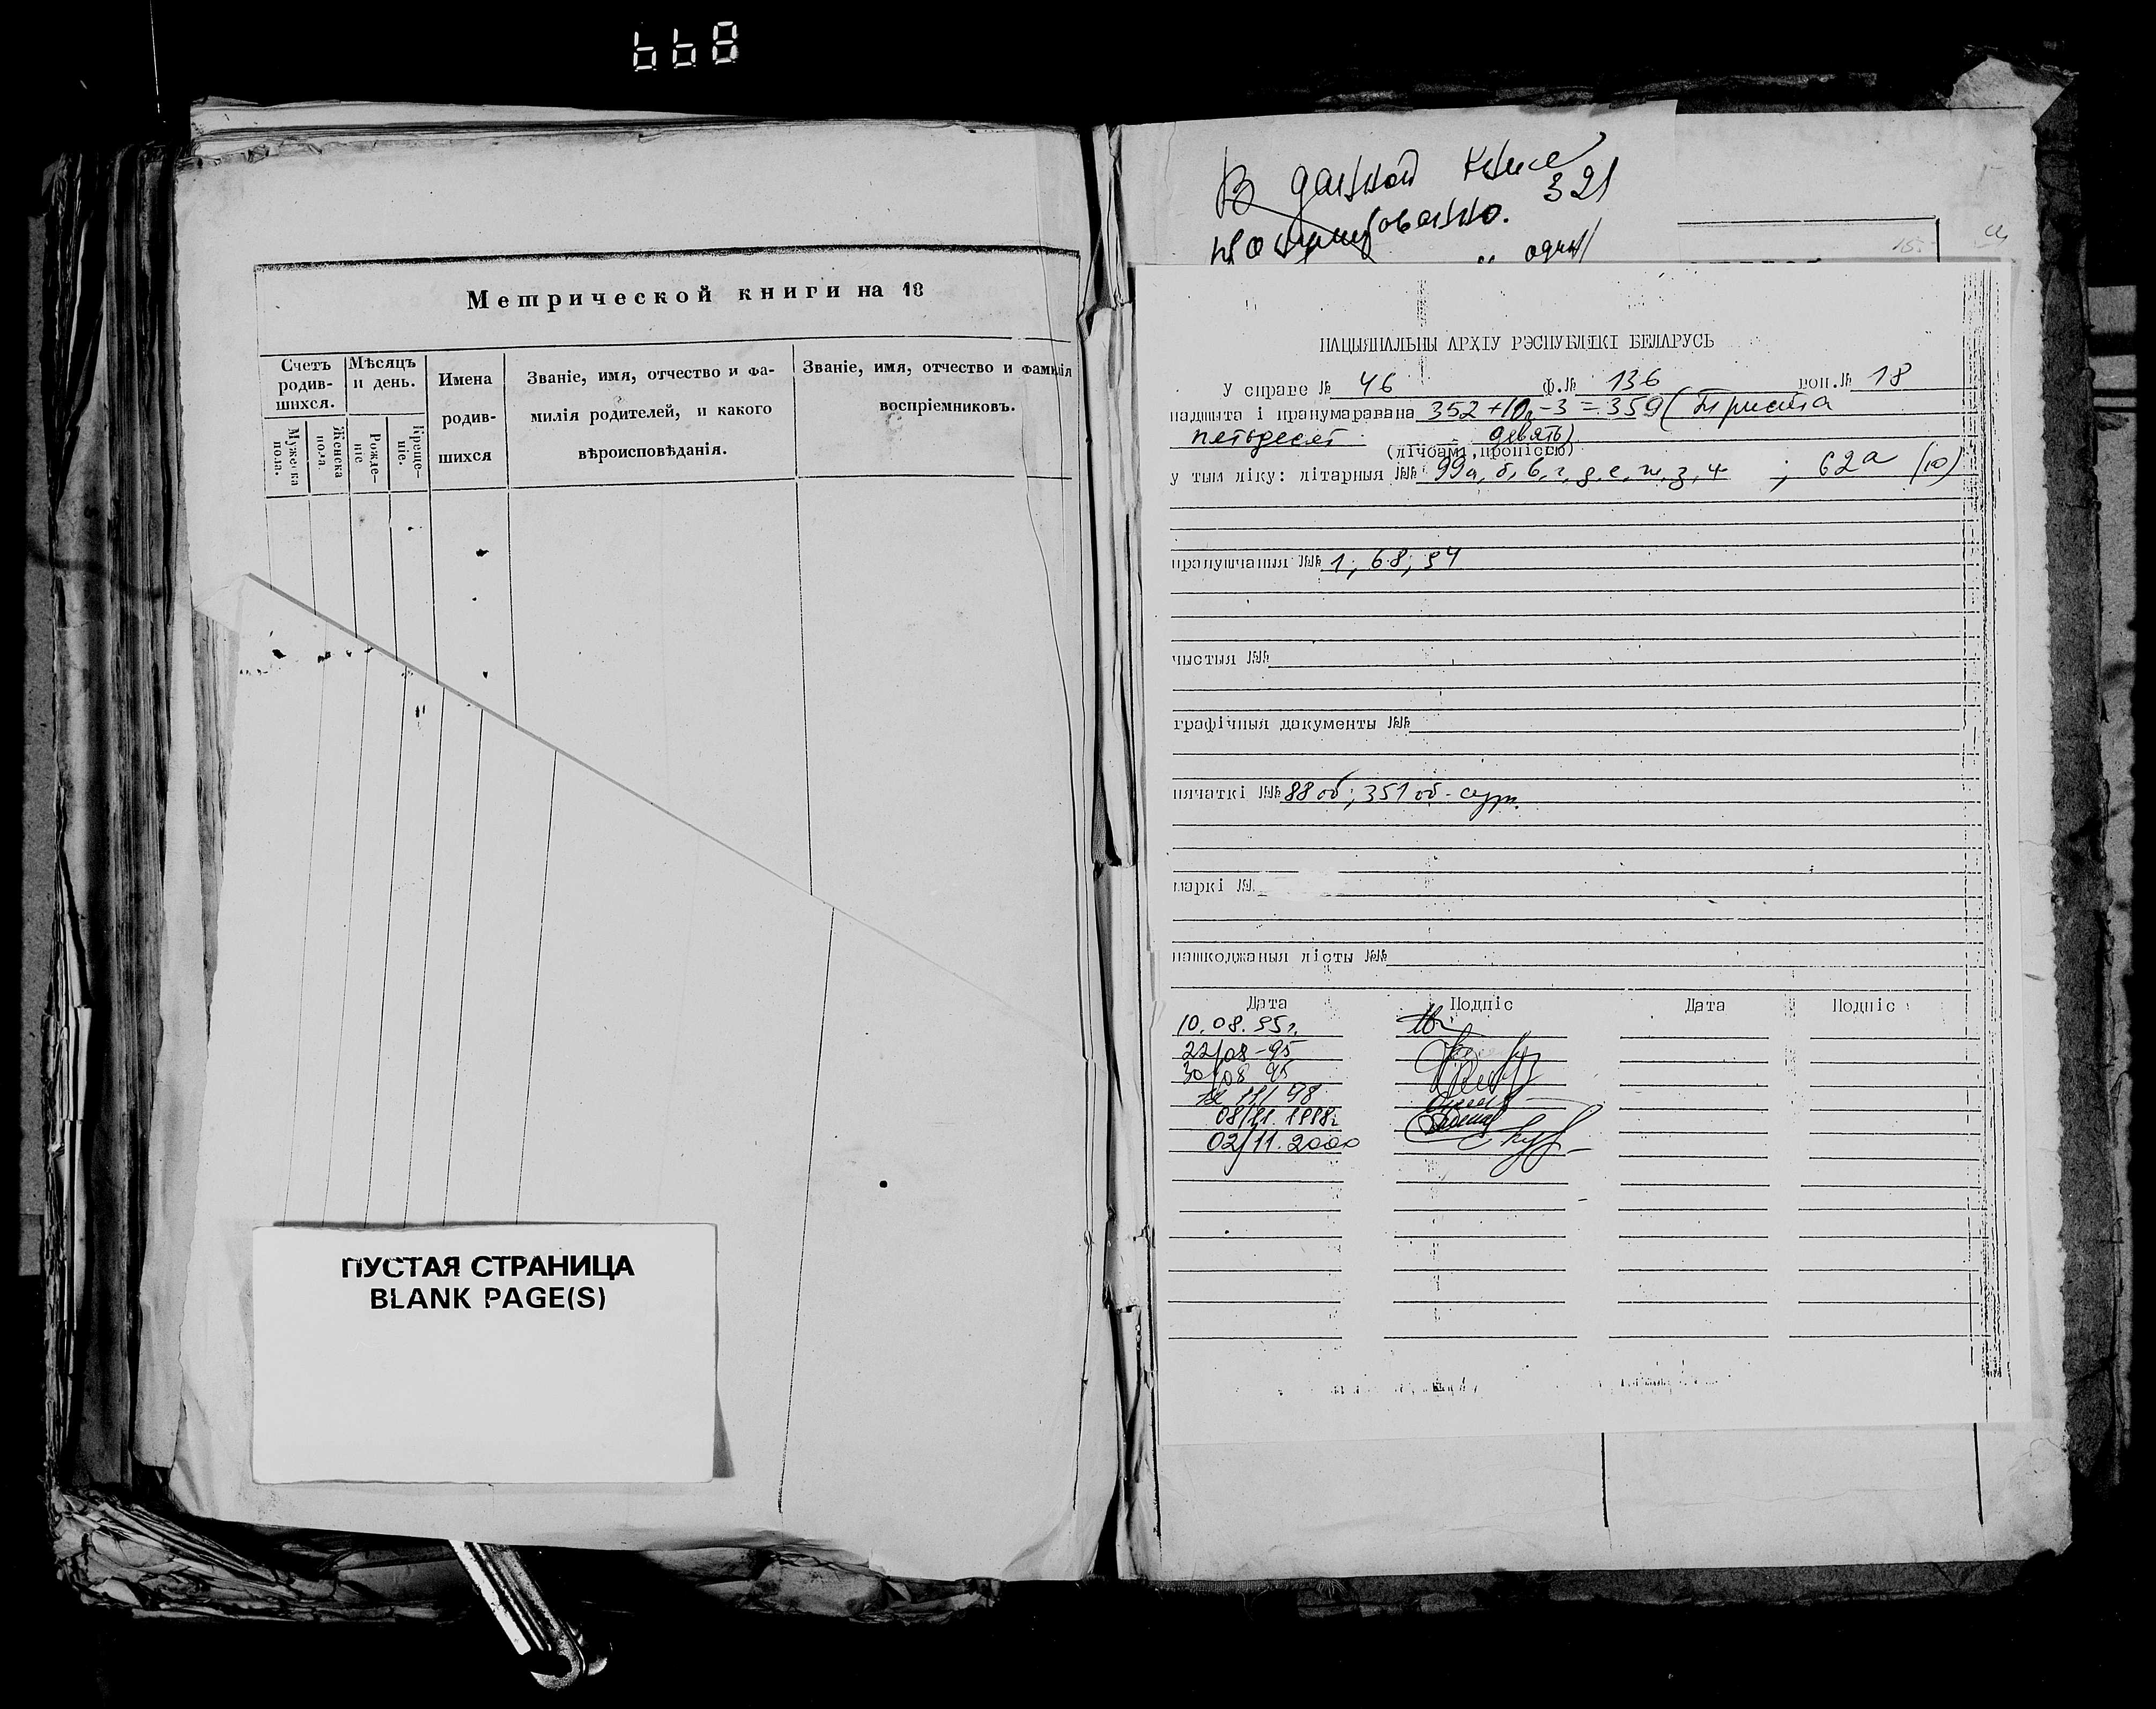 668
Метрической книги на 18
Счетъ родив- шихся.
Мѣсяцъ и день.
Имена родив- шихся
Званіе, имя, отчество и фа- милія родителей, и какого вѣроисповѣданія.
Званіе, имя, отчество и фамилія воспріемниковъ.
Мужеска пола.
Женска пола.
Рожде- ніе
Креще- ніе.
ПУСТАЯ СТРАНИЦА
BLANK PAGE(S)
В данной книге
пронумеровано. 321
один
НАЦЫЯНАЛЬНЫ АРХІУ РЭСПУБЛІКІ БЕЛАРУСЬ
У справе № 46 Ф.№ 136 воп.№ 18
падшыта і пранумаравана 352+10л-3=359 (триста
пятьдесят девять)
(лічбамі, пропіссю)
у тым ліку: літарныя №№ 99а, б, в, г, д, е, ж, з, и ; 62а (10)
прапушчаныя №№ 1; 68; 94
чыстыя №№
графічныя дакументы №№
пячаткі №№ 88 об; 351 об - сург.
маркі №№
пашкоджаныя лісты №№
Дата Подпіс Дата Подпіс
10.08.95г.
22/08-95
30/08 95
12 11/98
08/11.1998г
02/11.2000